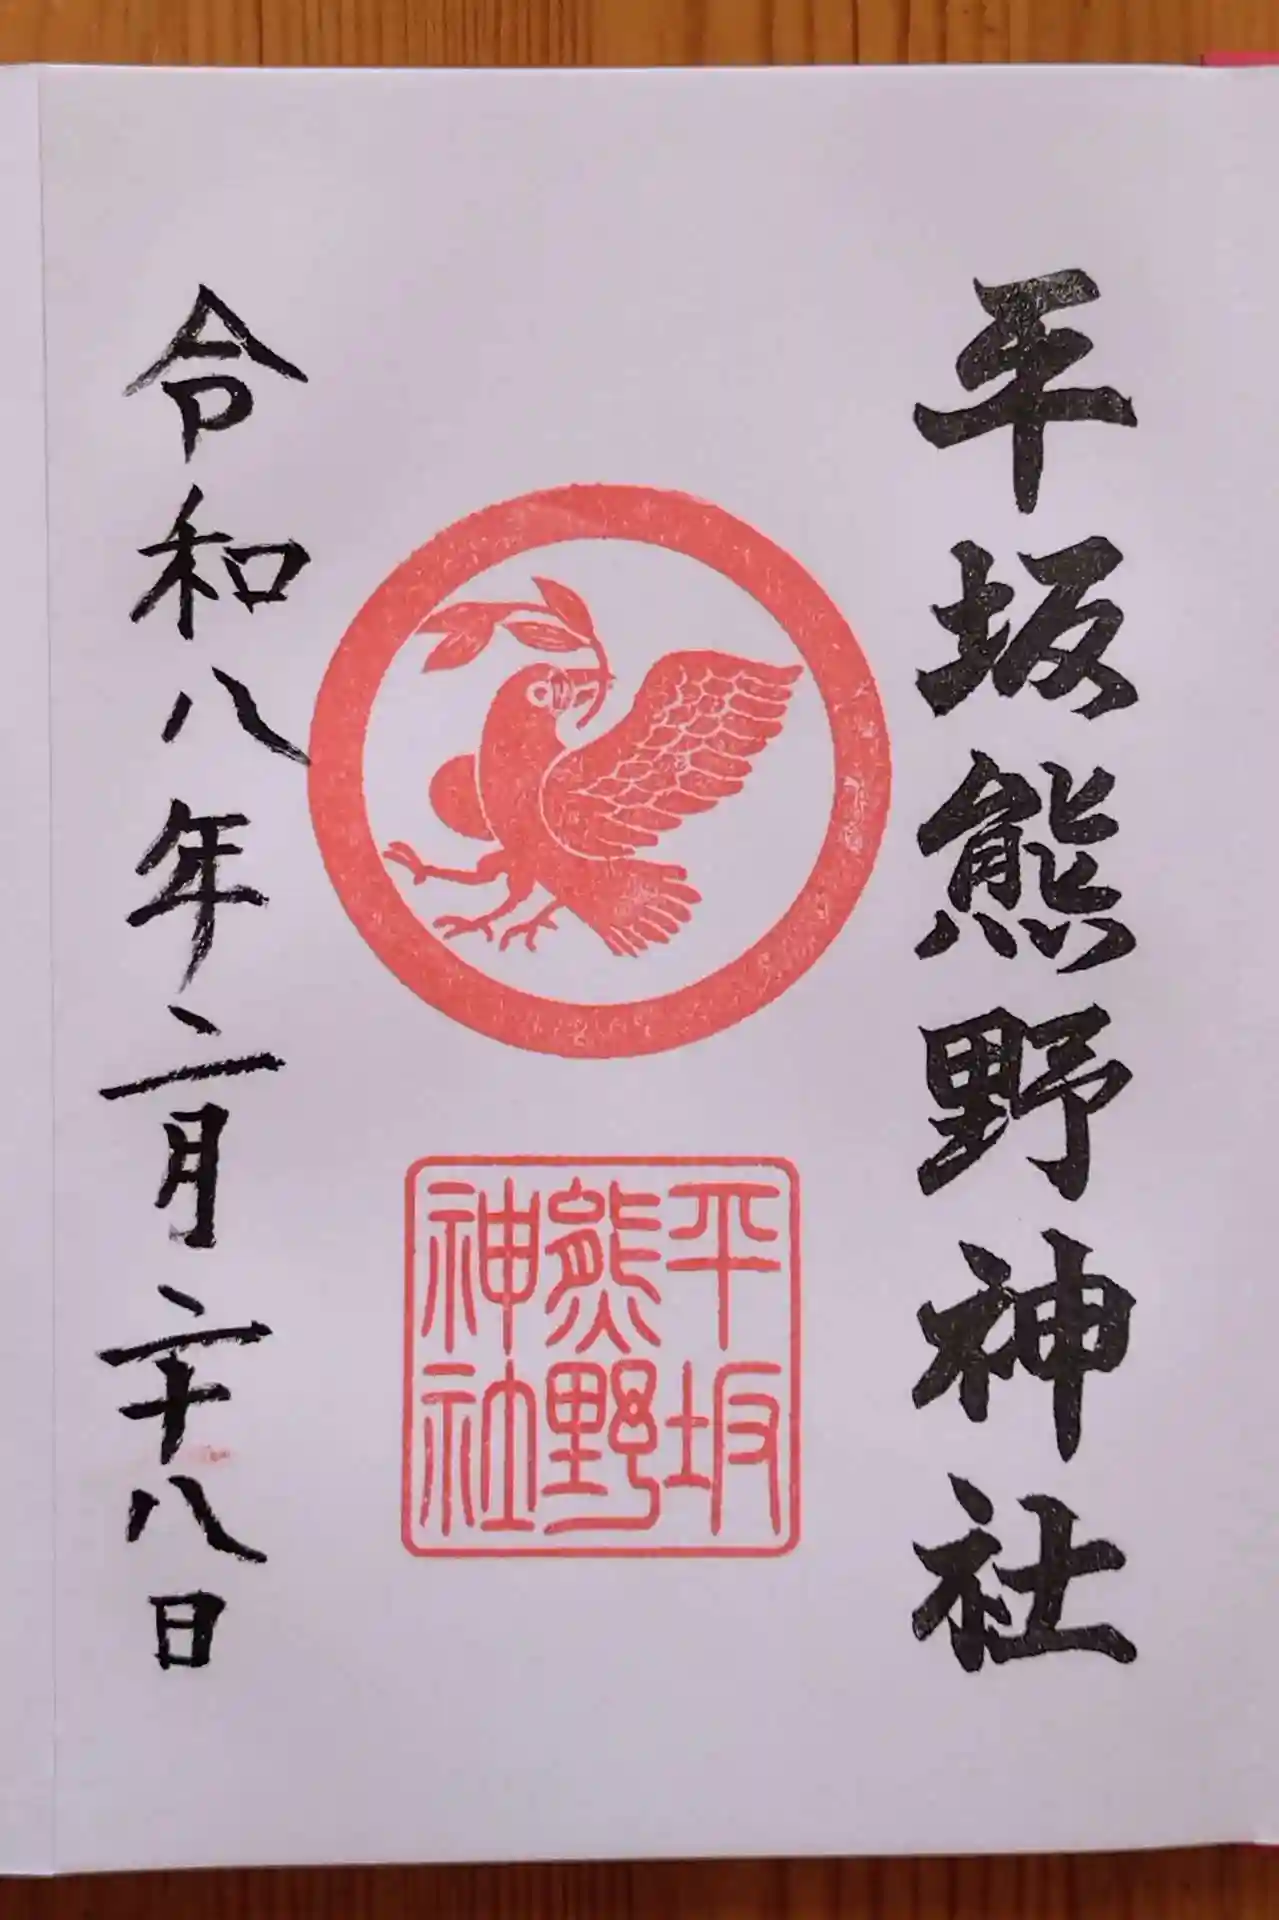 平坂熊野神社
平坂
熊野
神社
令和八年二月二十八日